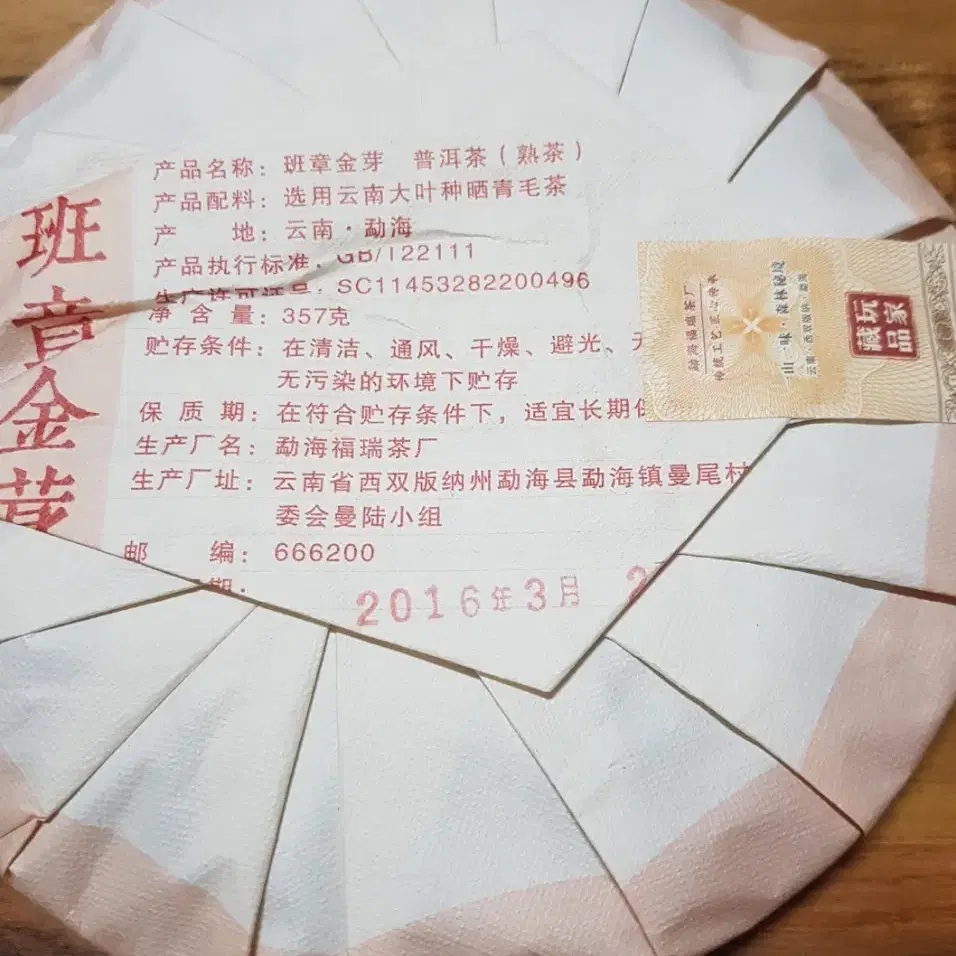 班章金芽
产品名称：班章金芽 普洱茶（熟茶）
产品配料：选用云南大叶种晒青毛茶
产 地：云南·勐海
产品执行标准：GB/T22111
生产许可证号：SC11453282200496
净含量：357克
贮存条件：在清洁、通风、干燥、避光、无
无污染的环境下贮存
保质期：在符合贮存条件下，适宜长期保
生产厂名：勐海福瑞茶厂
生产厂址：云南省西双版纳州勐海县勐海镇曼尾村
委会曼陆小组
邮 编：666200
期：
2016年3月 2
玩家
藏品
山一味·森林秘境
云南·西双版纳·勐海
勐海福瑞茶厂
传统工艺 匠心传承